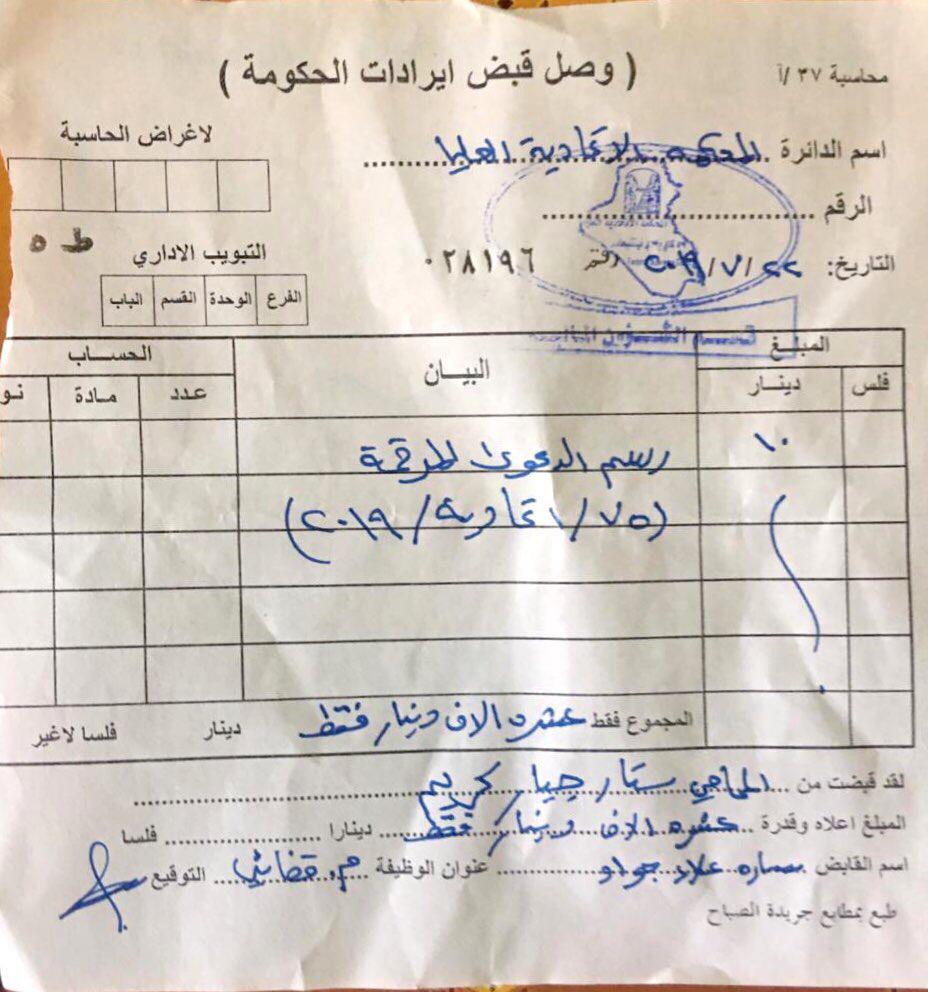 محاسبة ٣٧ /أ
( وصل قبض ايرادات الحكومة )
لاغراض الحاسبة
اسم الدائرة المحكمة الاتحادية العليا
الرقم
التاريخ: ٢٢/٧/٢٠١٩ رقم ٠٢٨١٩٦
ط ٥
التبويب الاداري
الفرع الوحدة القسم الباب
قسم الشؤون المالية
المبلغ البيــان الحســاب
فلس دينــار عـدد مـادة نـو
١٠ رسم الدعوى المرقمة
(٧٥/اتحادية/٢٠١٩)
المجموع فقط عشرة الاف دينار فقط دينار فلسا لاغير
لقد قبضت من المحامي ستار جبار كريم
المبلغ اعلاه وقدرة عشرة الاف دينار فقط دينارا فلسا
اسم القابض ساره علاء جواد عنوان الوظيفة م. قضائي التوقيع
طبع بمطابع جريدة الصباح